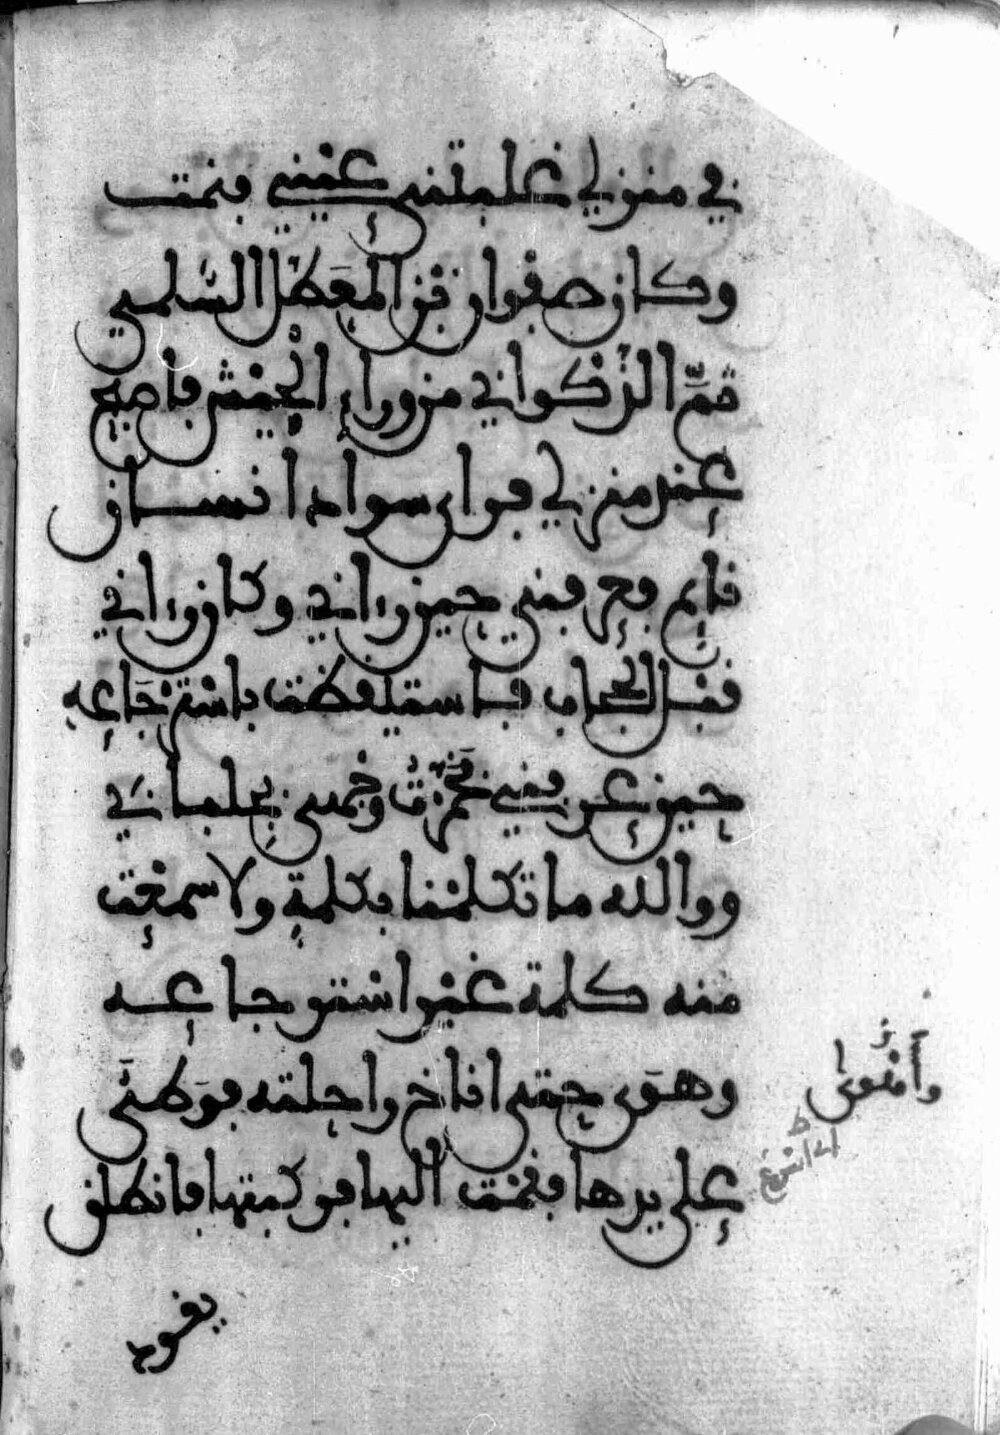 في منزلي غلبتني عيني فنمت
وكان صفوان بن المعطل السلمي
ثم الذكواني من وراء الجيش فاصبح
عند منزلي فراى سواد انسان
نايم فعرفني حين رءاني وكان رءاني
قبل الحجاب فاستيقظت باسترجاعه
حين عرفني فخمرت وجهي بجلبابي
ووالله ما تكلمنا بكلمة ولا سمعت
منه كلمة غير استرجاعه
وهوى حتى اناخ راحلته فوطئ
على يدها فقمت اليها فركبتها فانطلق
يقود